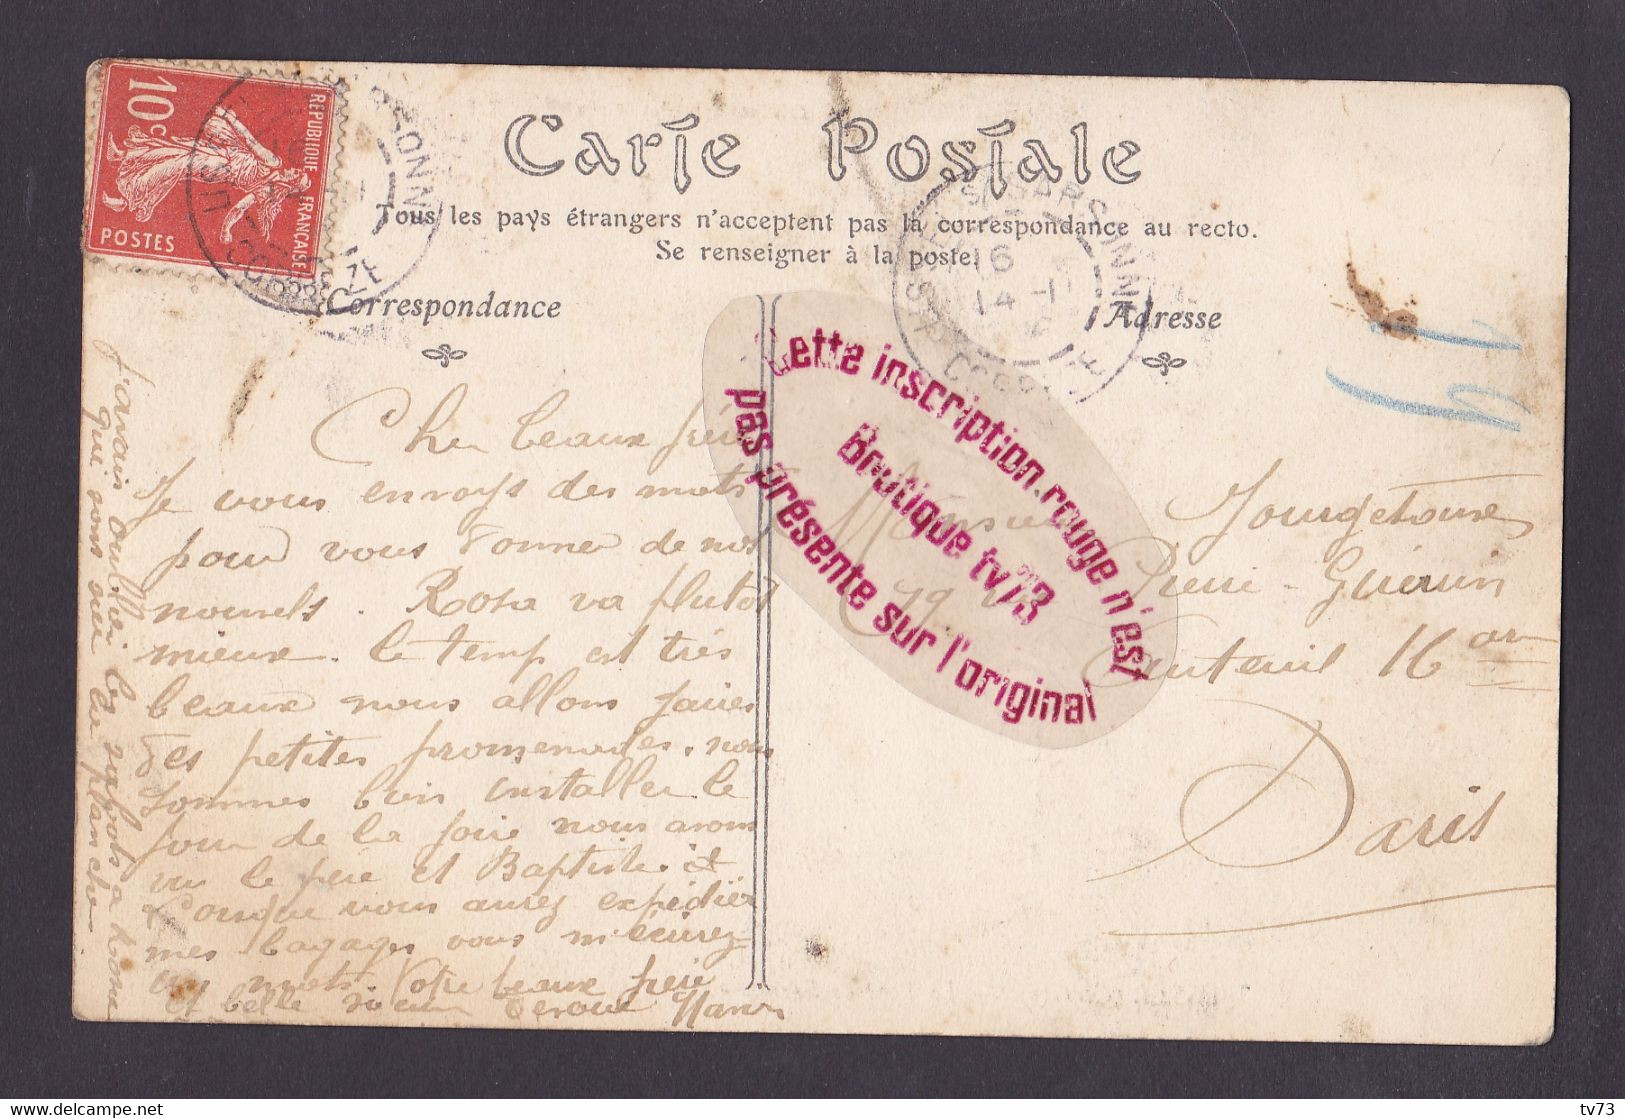 10c
REPUBLIQUE FRANÇAISE
POSTES
Carte Postale
Tous les pays étrangers n'acceptent pas la correspondance au recto.
Se renseigner à la poste
Correspondance
Adresse
16
Cette inscription rouge n'est
pas présente sur l'original
Boutique tv73
Cher beaux frère
Je vous envoys des mots
pour vous donner de nos
nouvels. Rosa va plutot
mieux. le temp est très
beaux nous allons faires
des petites promenades. nous
sommes bien installer le
jour de la foire nous avons
vu le père et Baptiste. et
Lorsque vous aurez expédier
mes bagages vous m'écrirez
un mots Votre beaux frère
et belle sœur
j'avais oublier les sabots a
qui sons sur la planche
Pierre-Guérin
Auteuil 16 arr
Paris
tv73